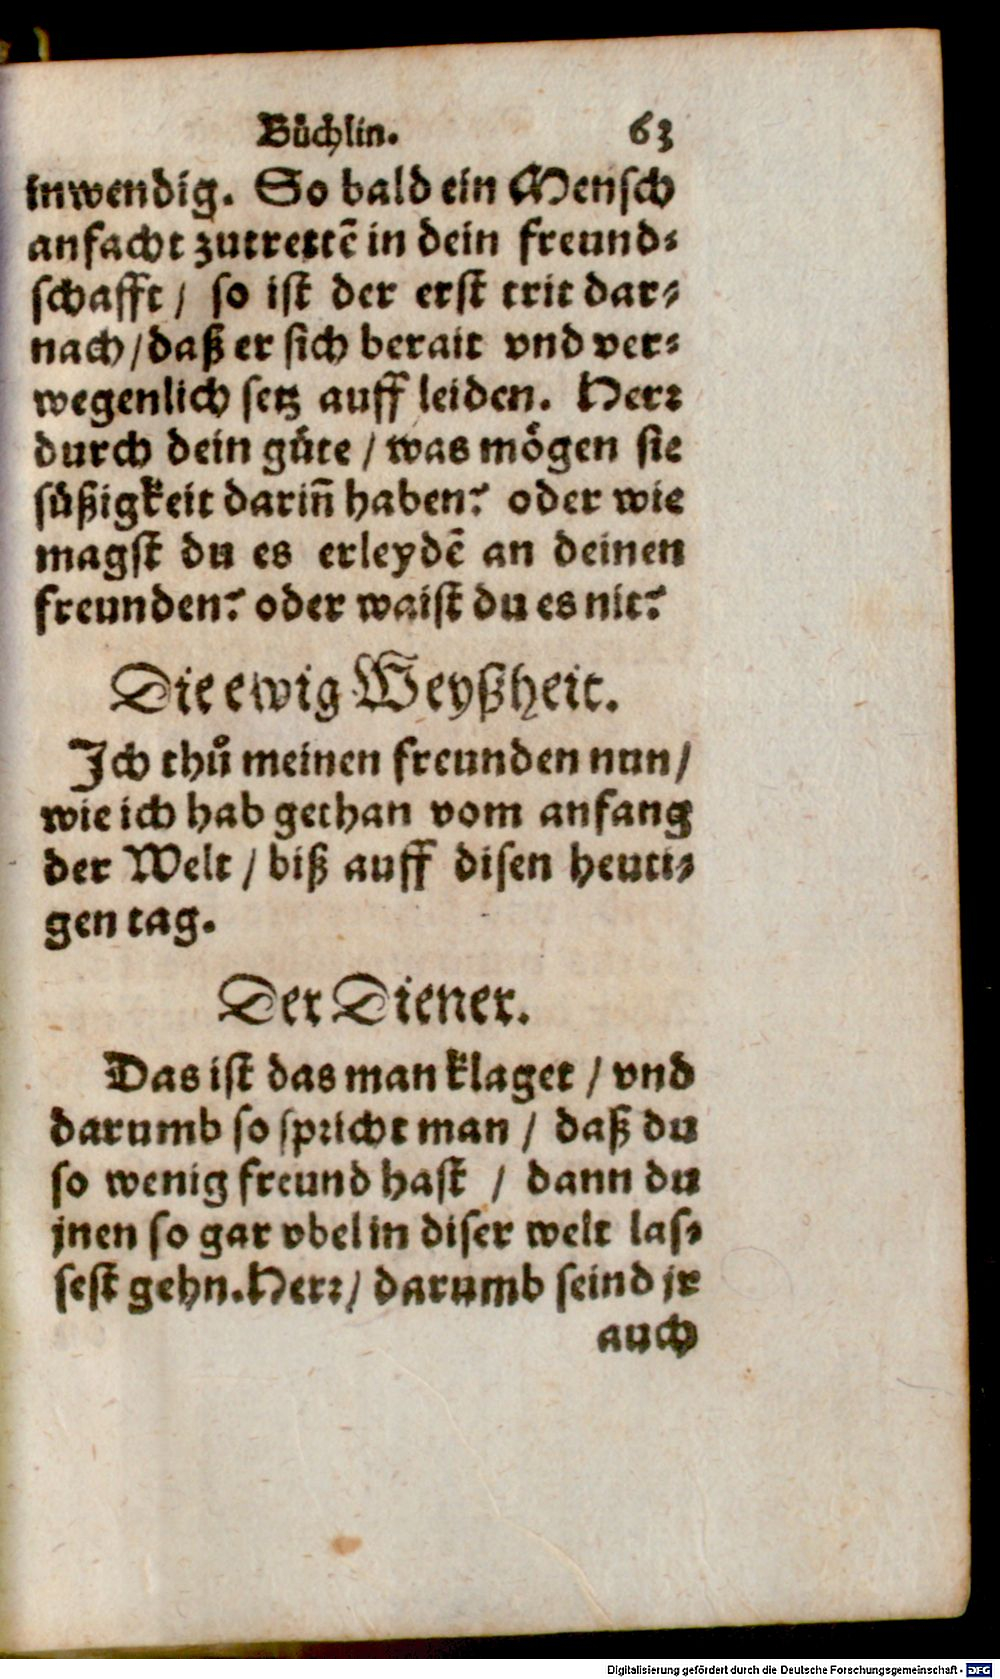 Bůchlin. 63
inwendig. So bald ein Mensch
anfacht zutrettē in dein freund⸗
schafft / so ist der erst trit dar⸗
nach / daß er sich berait vnd ver⸗
wegenlich setz auff leiden. Herꝛ
durch dein gůte / was mögen sie
süßigkeit dariñ haben? oder wie
magst du es erleydē an deinen
freunden? oder waist du es nit?
Die ewig Weyßheit.
Ich thů meinen freunden nun /
wie ich hab gethan vom anfang
der Welt / biß auff disen heuti⸗
gen tag.
Der Diener.
Das ist das man klaget / vnd
darumb so spꝛicht man / daß du
so wenig freund hast / dann du
jnen so gar vbel in diser welt las⸗
sest gehn. Herꝛ / darumb seind jr
auch
Digitalisierung gefördert durch die Deutsche Forschungsgemeinschaft - DFG